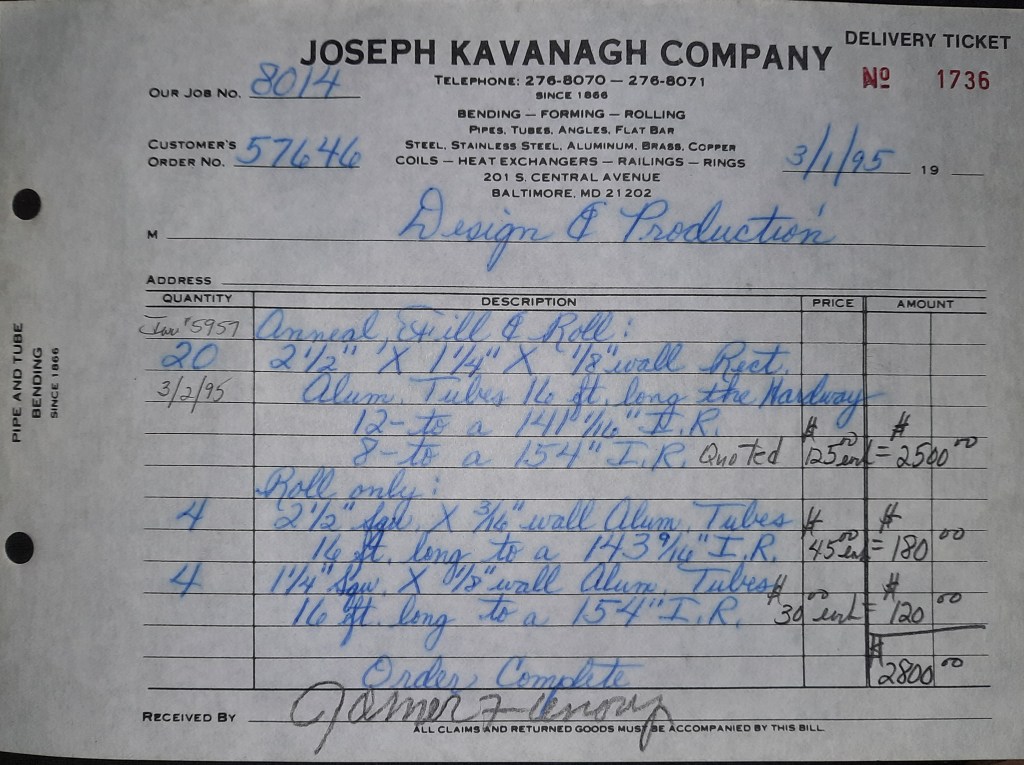 JOSEPH KAVANAGH COMPANY
DELIVERY TICKET
Nº 1736
TELEPHONE: 276-8070 — 276-8071
SINCE 1866
OUR JOB NO. 8014
BENDING — FORMING — ROLLING
PIPES, TUBES, ANGLES, FLAT BAR
STEEL, STAINLESS STEEL, ALUMINUM, BRASS, COPPER
COILS — HEAT EXCHANGERS — RAILINGS — RINGS
201 S. CENTRAL AVENUE
BALTIMORE, MD 21202
CUSTOMER'S ORDER NO. 57646
3/1/95 19
M Design & Production
ADDRESS
QUANTITY DESCRIPTION PRICE AMOUNT
#5957 Anneal, Fill & Roll:
20 2 1/2" X 1 1/4" X 1/8" wall Rect.
3/2/95 Alum. Tubes 16 ft. long the Hardway
12- to a 141 1/16" I.R.
8- to a 154" I.R. Quoted $125.00 each = $2500.00
Roll only:
4 2 1/2" Squ. X 3/16" wall Alum. Tubes
16 ft. long to a 143 9/16" I.R. $45.00 ea = $180.00
4 1 1/4" Squ. X 1/8" wall Alum. Tubes
16 ft. long to a 154" I.R. $30.00 each = $120.00
$2800.00
Order Complete
RECEIVED BY
ALL CLAIMS AND RETURNED GOODS MUST BE ACCOMPANIED BY THIS BILL
PIPE AND TUBE
BENDING
SINCE 1866